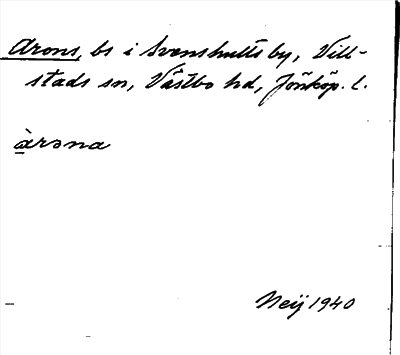 Arons, bs i Svenshults by, Vill-
stads sn, Västbo hd, Jönköp. l.
àrɘna
Neij 1940